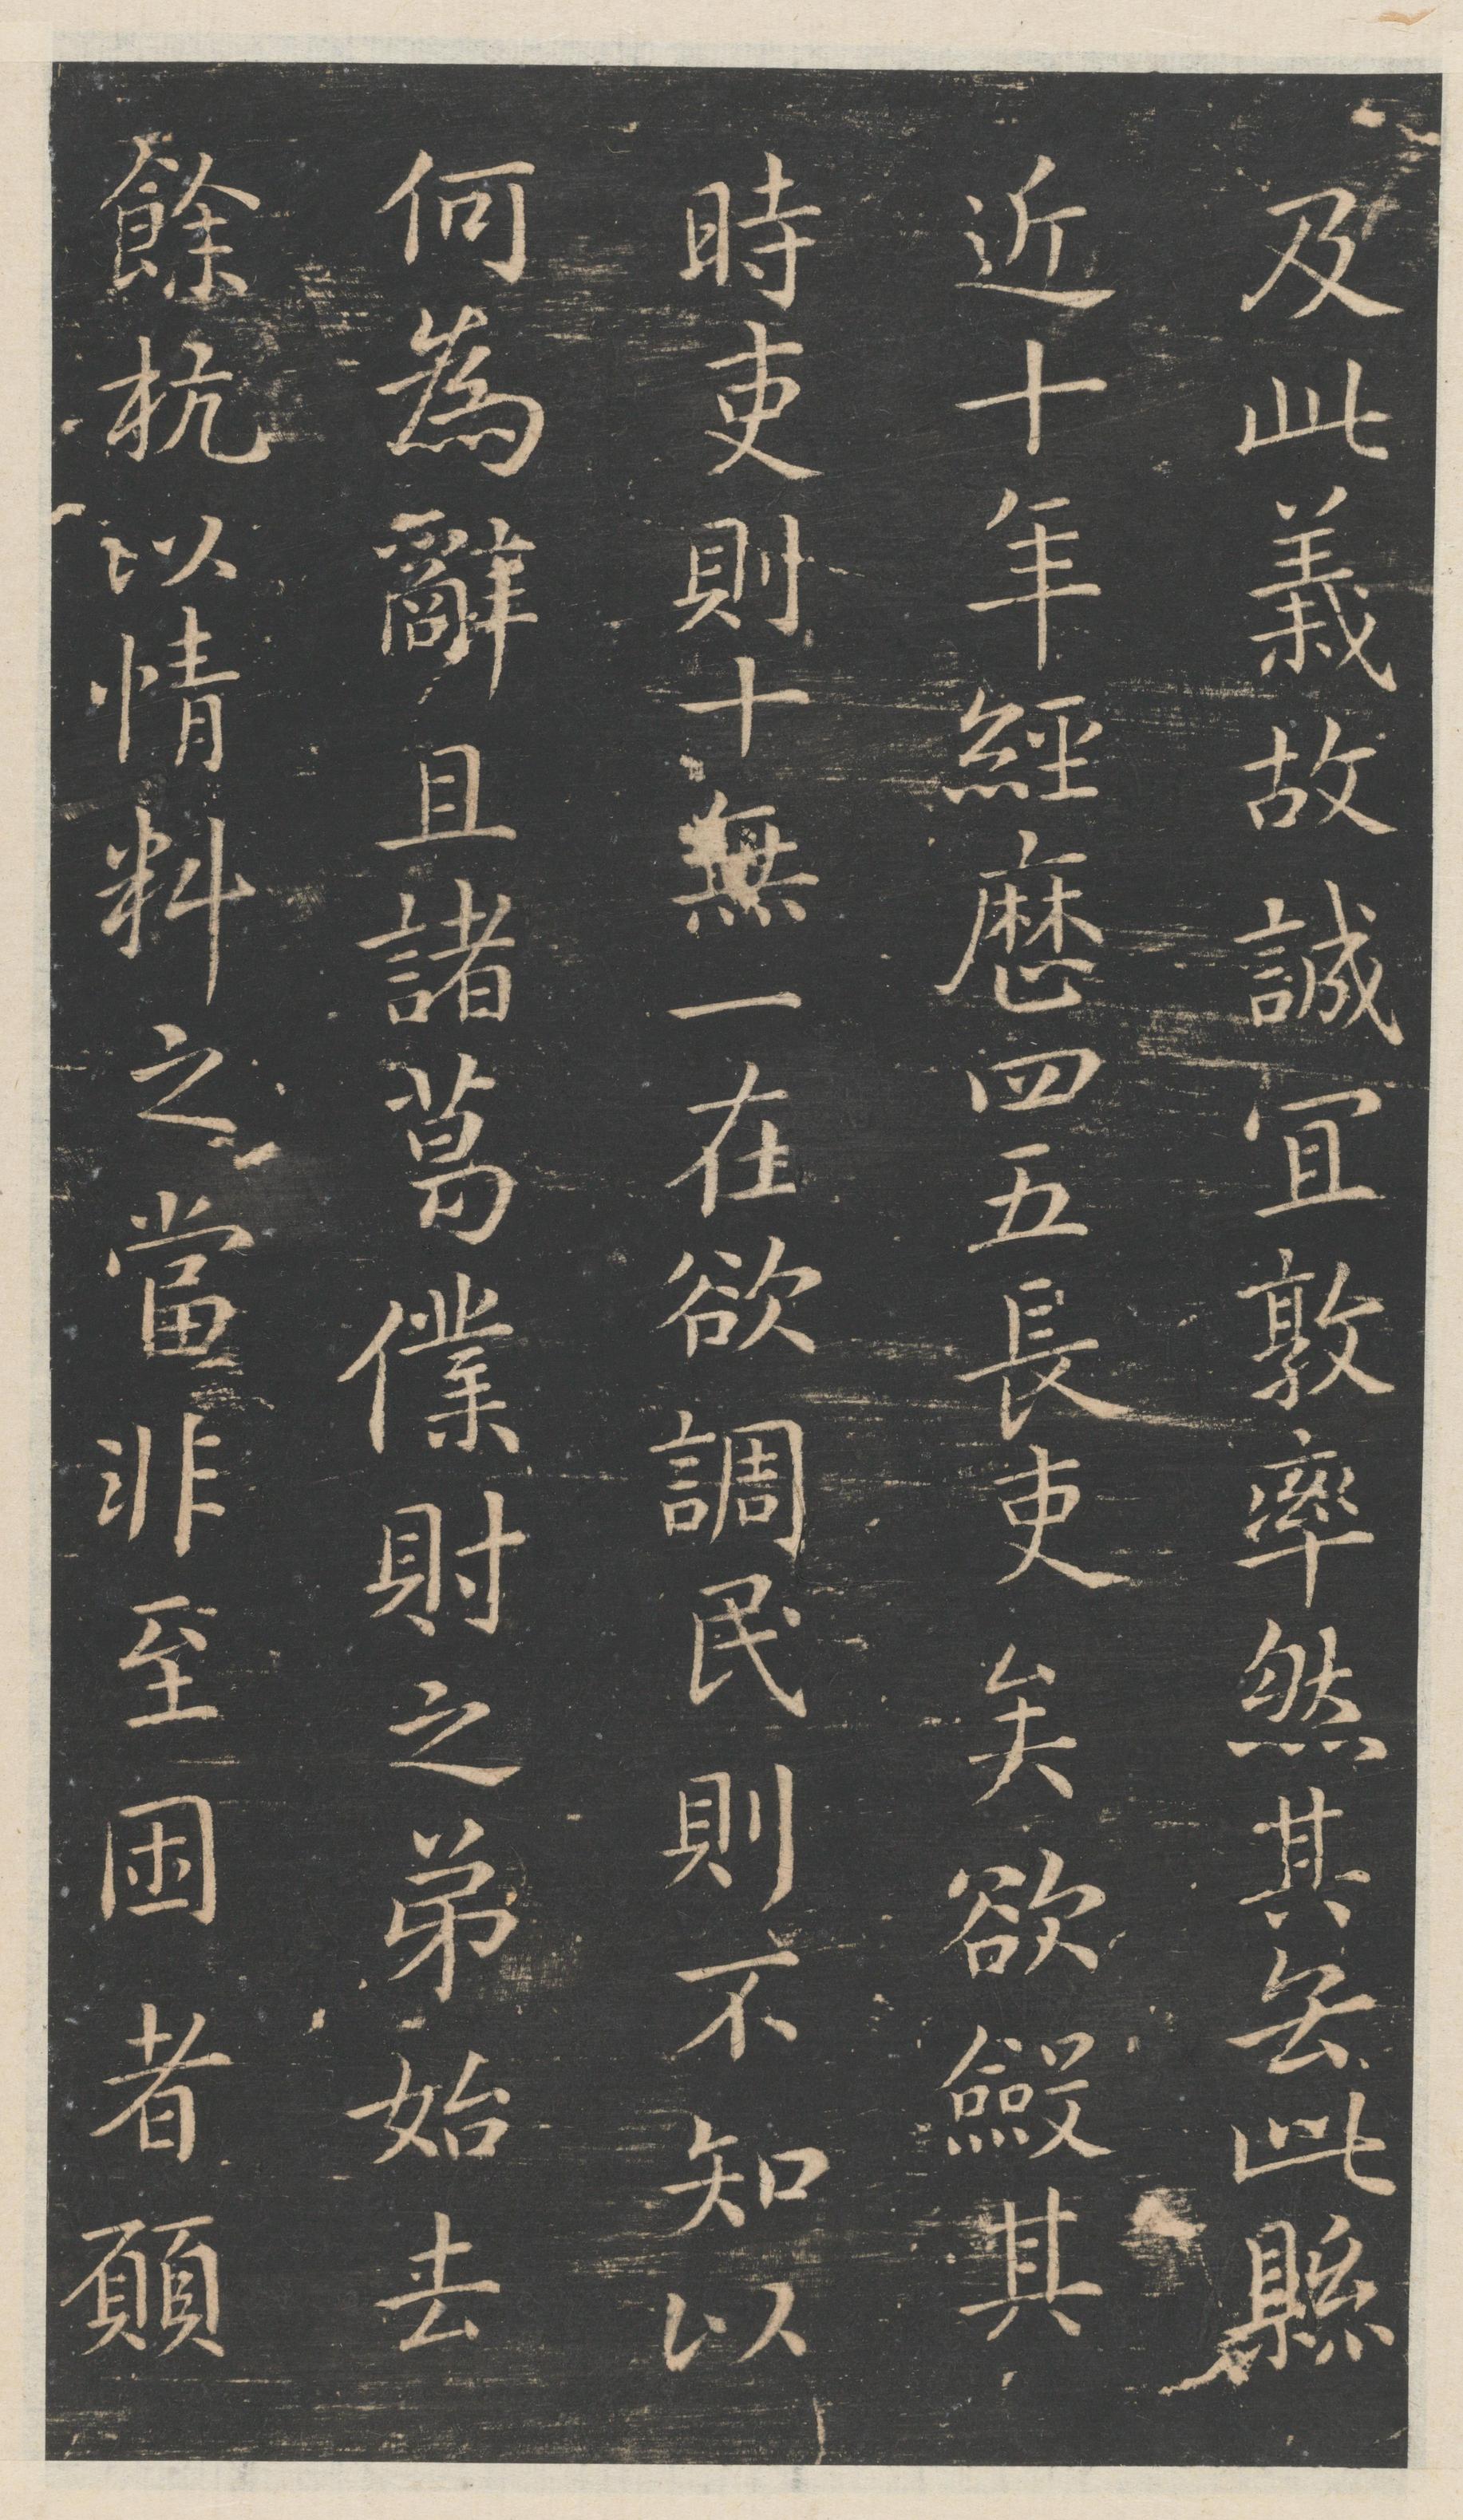 及此義故誠宜敦率然其去此縣
近十年經歷四五長吏矣欲斂其
時吏則十無一在欲調民則不知以
何為辭且諸葛僕財之弟始去
餘杭以情料之當非至困者顧